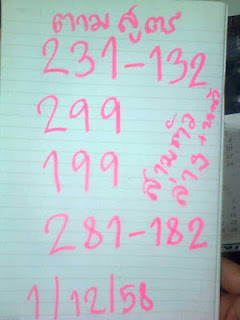 ตามสูตร
231-132
299
199
281-182
สามตัว
ล่าง
1/12/58